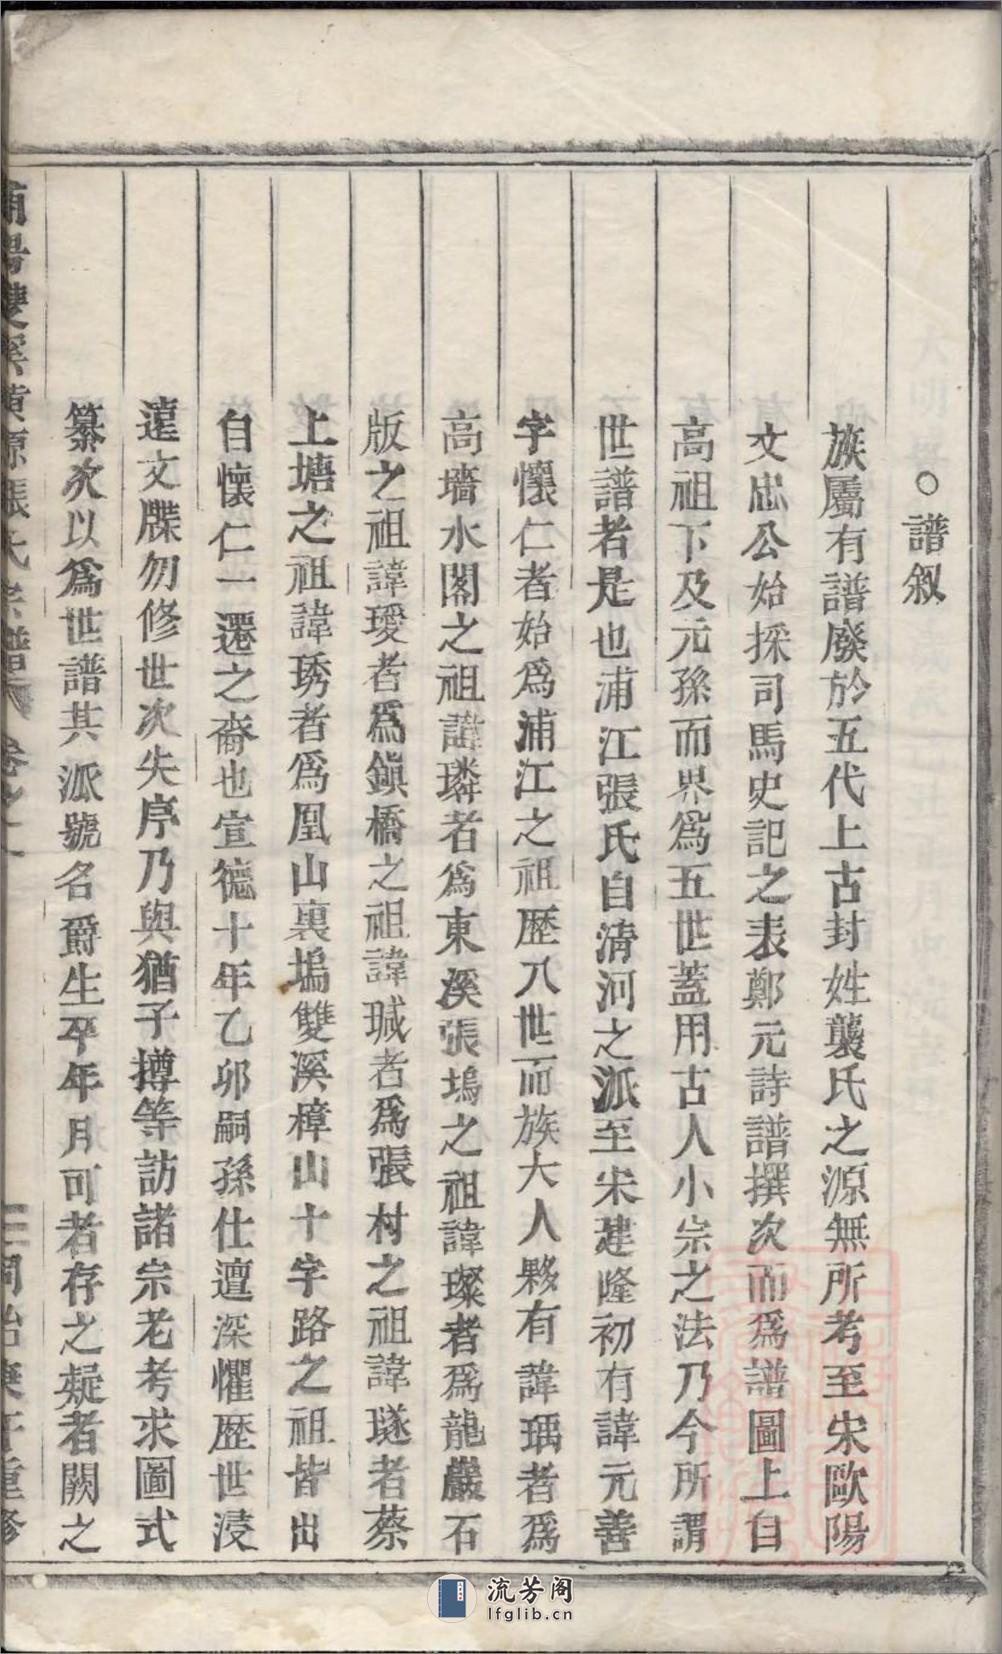 ○譜叙
族屬有譜廢於五代上古封姓襲氏之源無所考至宋歐陽
文忠公始採司馬史記之表鄭元詩譜撰次而爲譜圖上自
高祖下及元孫而界爲五世蓋用古人小宗之法乃今所謂
世譜者是也浦江張氏自清河之派至宋建隆初有諱元善
字懷仁者始爲浦江之祖歷八世而族大人夥有諱瑀者爲
高墻水閣之祖諱璘者爲東溪張塢之祖諱璨者爲龍巖石
版之祖諱璦者爲鎭橋之祖諱瑊者爲張村之祖諱璲者蔡
上塘之祖諱琇者爲凰山裏塢雙溪樟山十字路之祖皆出
自懷仁一遷之裔也宣德十年乙卯嗣孫仕邅深懼歷世浸
遠文牒勿修世次失序乃與猶子撙等訪諸宗老考求圖式
纂次以爲世譜其派號名爵生卒年月可者存之疑者闕之
浦陽雙溪黃源張氏宗譜 卷之一 三 同治庚午重修
流芳阁
lfglib.cn